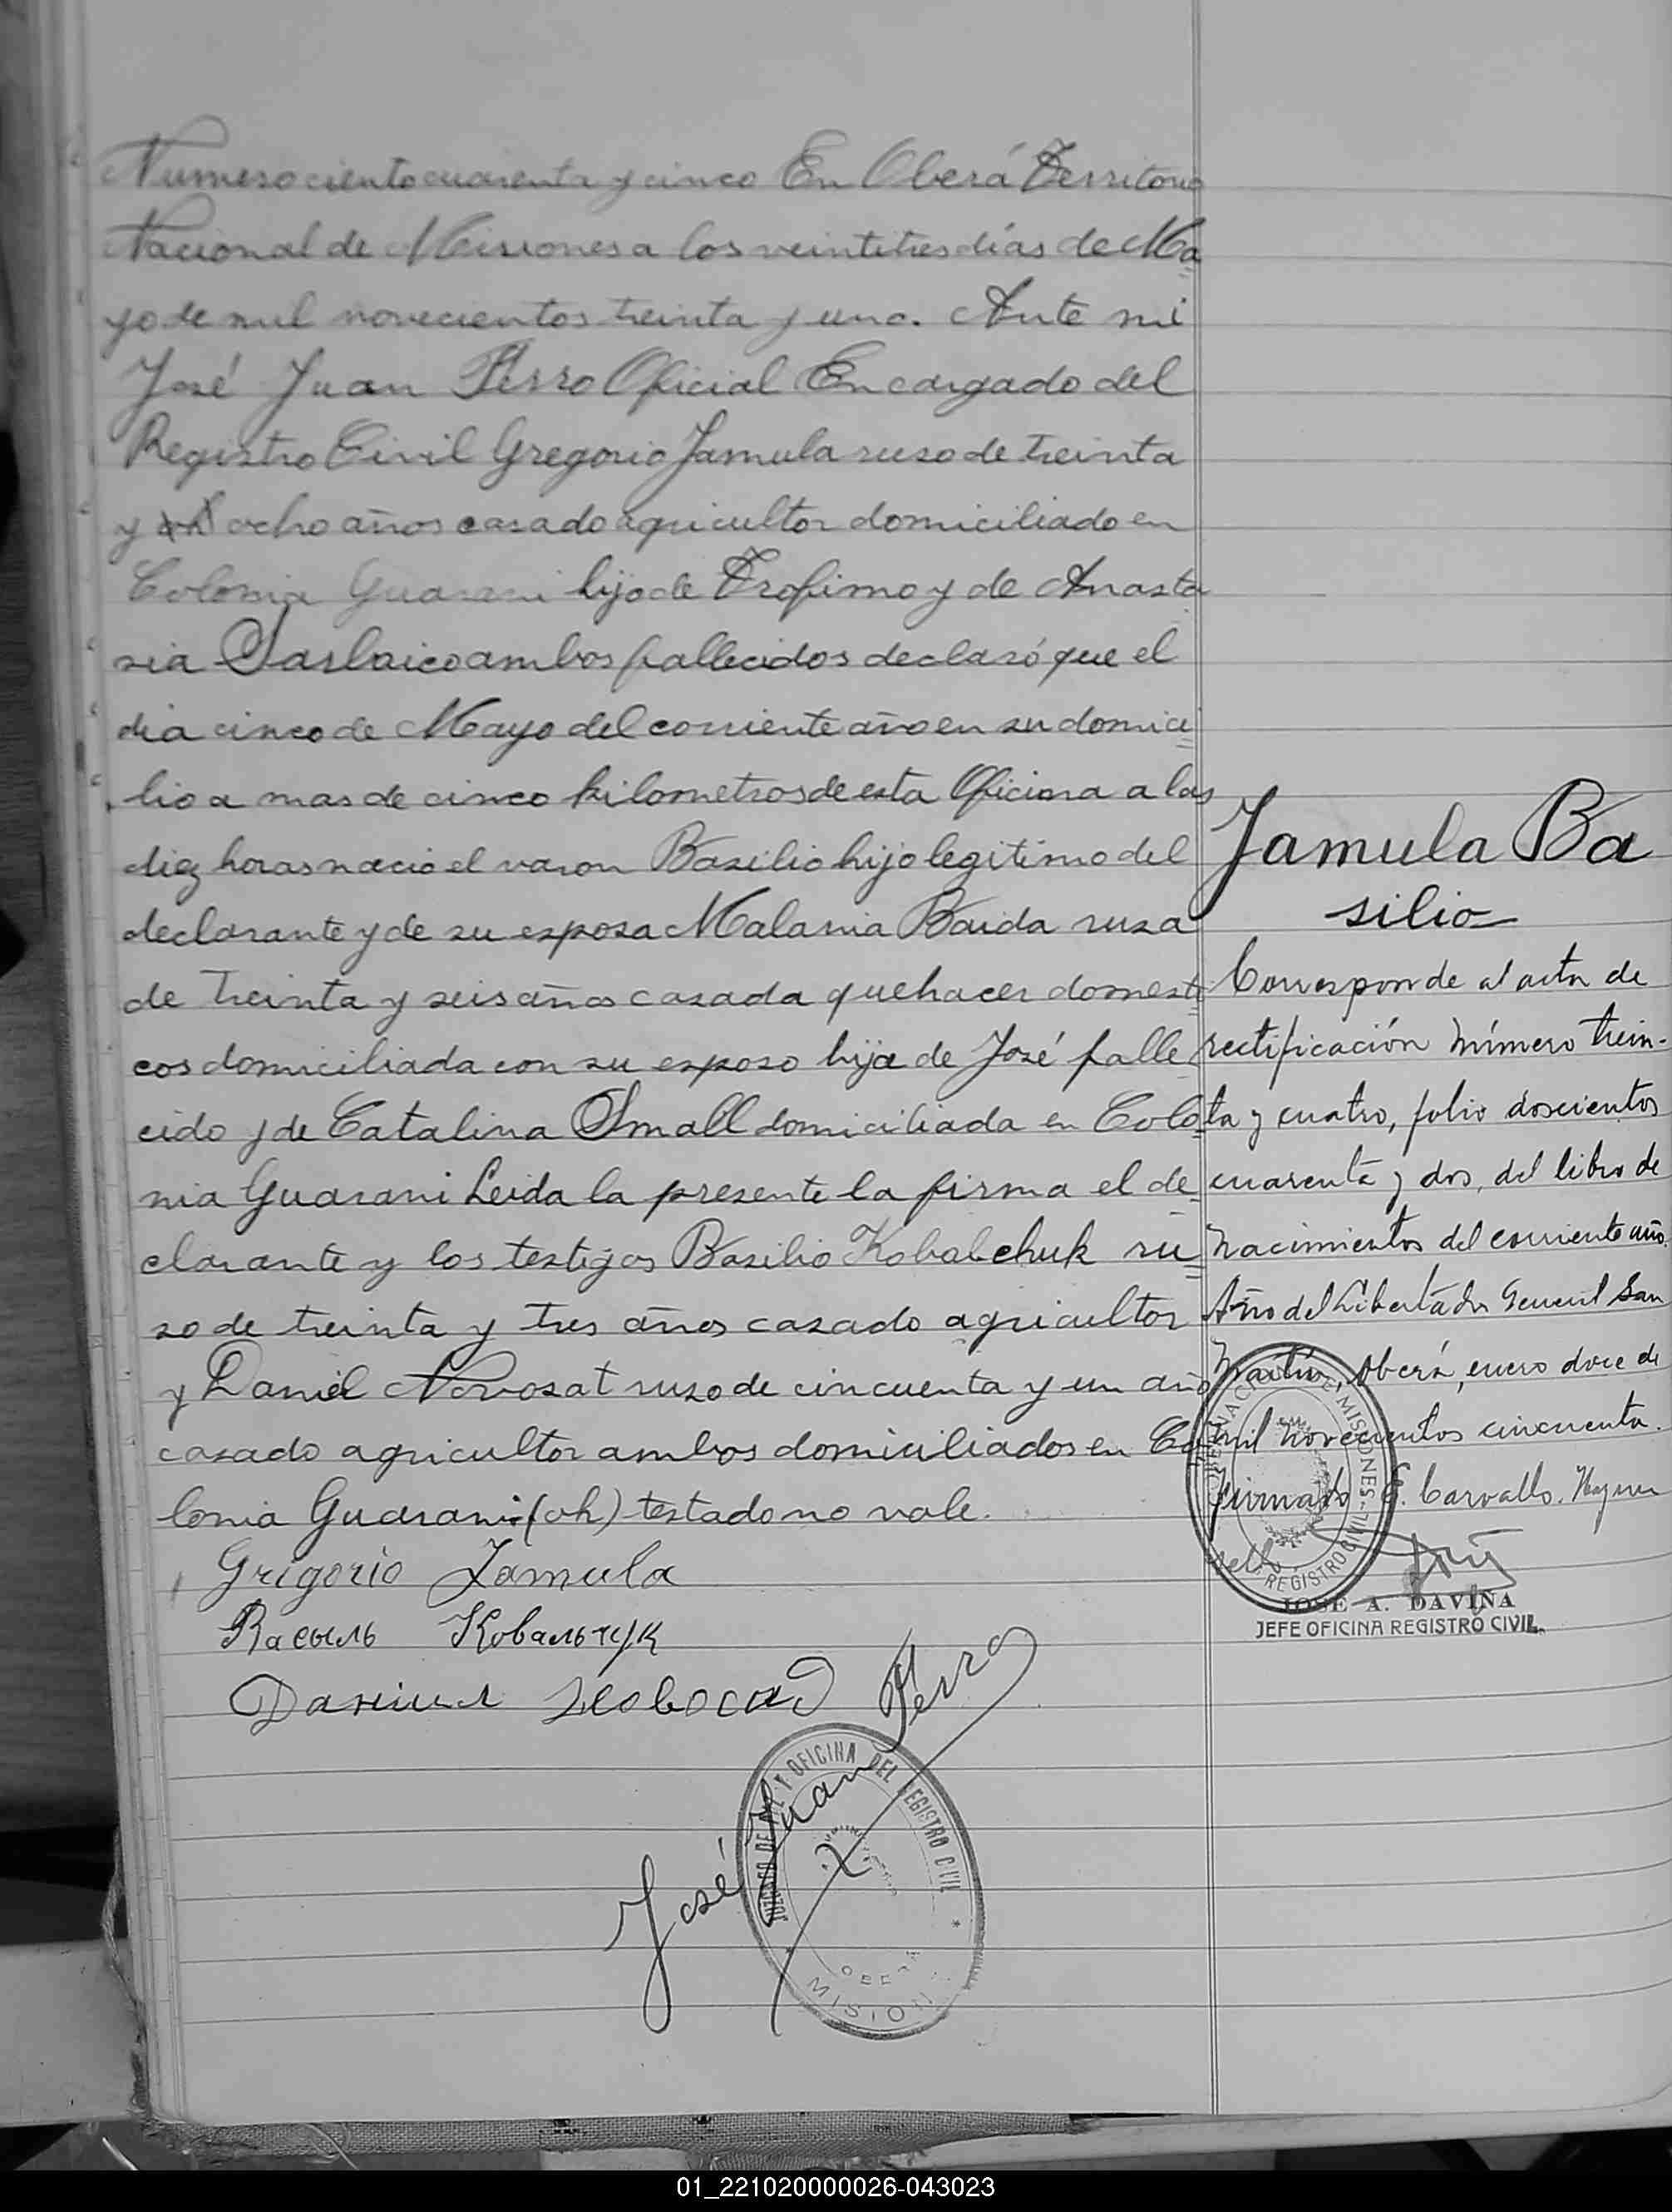 Numero ciento cuarenta y cinco En Oberá Territorio
Nacional de Misiones a los veintitres días de Ma
yo de mil novecientos treinta y uno. Ante mi
José Juan Ferro Oficial Encargado del
Registro Civil Gregorio Jamula ruso de treinta
y oh ocho años casado agricultor domiciliado en
Colonia Guarani hijo de Trofimo y de Anasta
sia ambos fallecidos declaró que el
dia cinco de Mayo del corriente año en su domici
lio a mas de cinco kilometros de esta Oficina a las
diez horas nacio el varon Basilio hijo legitimo del
declarante y de su esposa Malania Baida rusa
de treinta y seis años casada quehacer domesti
cos domiciliada con su esposo hija de José falle
cido y de Catalina Small domiciliada en Colo
nia Guarani Leida la presente la firma el de
clarante y los testigos Basilio Kobalchuk ru
so de treinta y tres años casado agricultor
y Daniel Novosat ruso de cincuenta y un año
casado agricultor ambos domiciliados en Co
lonia Guarani (oh) testado no vale.
Grigorio Zamula
Василь Ковальчук
Даниил Новосад
José Juan Ferro
JUZGADO DE PAZ Y OFICINA DEL REGISTRO CIVIL
OBERA
MISIONES
Jamula Ba
silio
Corresponde al acta de
rectificación número trein-
ta y cuatro, folio doscientos
cuarenta y dos, del libro de
nacimientos del corriente año.
Año del Libertador General San
Martín, Oberá, enero doce de
mil novecientos cincuenta.
Firmado E. Carvallo. Hay un
sello
GOBERNACION DE MISIONES
REGISTRO CIVIL
JOSE A. DAVIÑA
JEFE OFICINA REGISTRO CIVIL
01_221020000026-043023